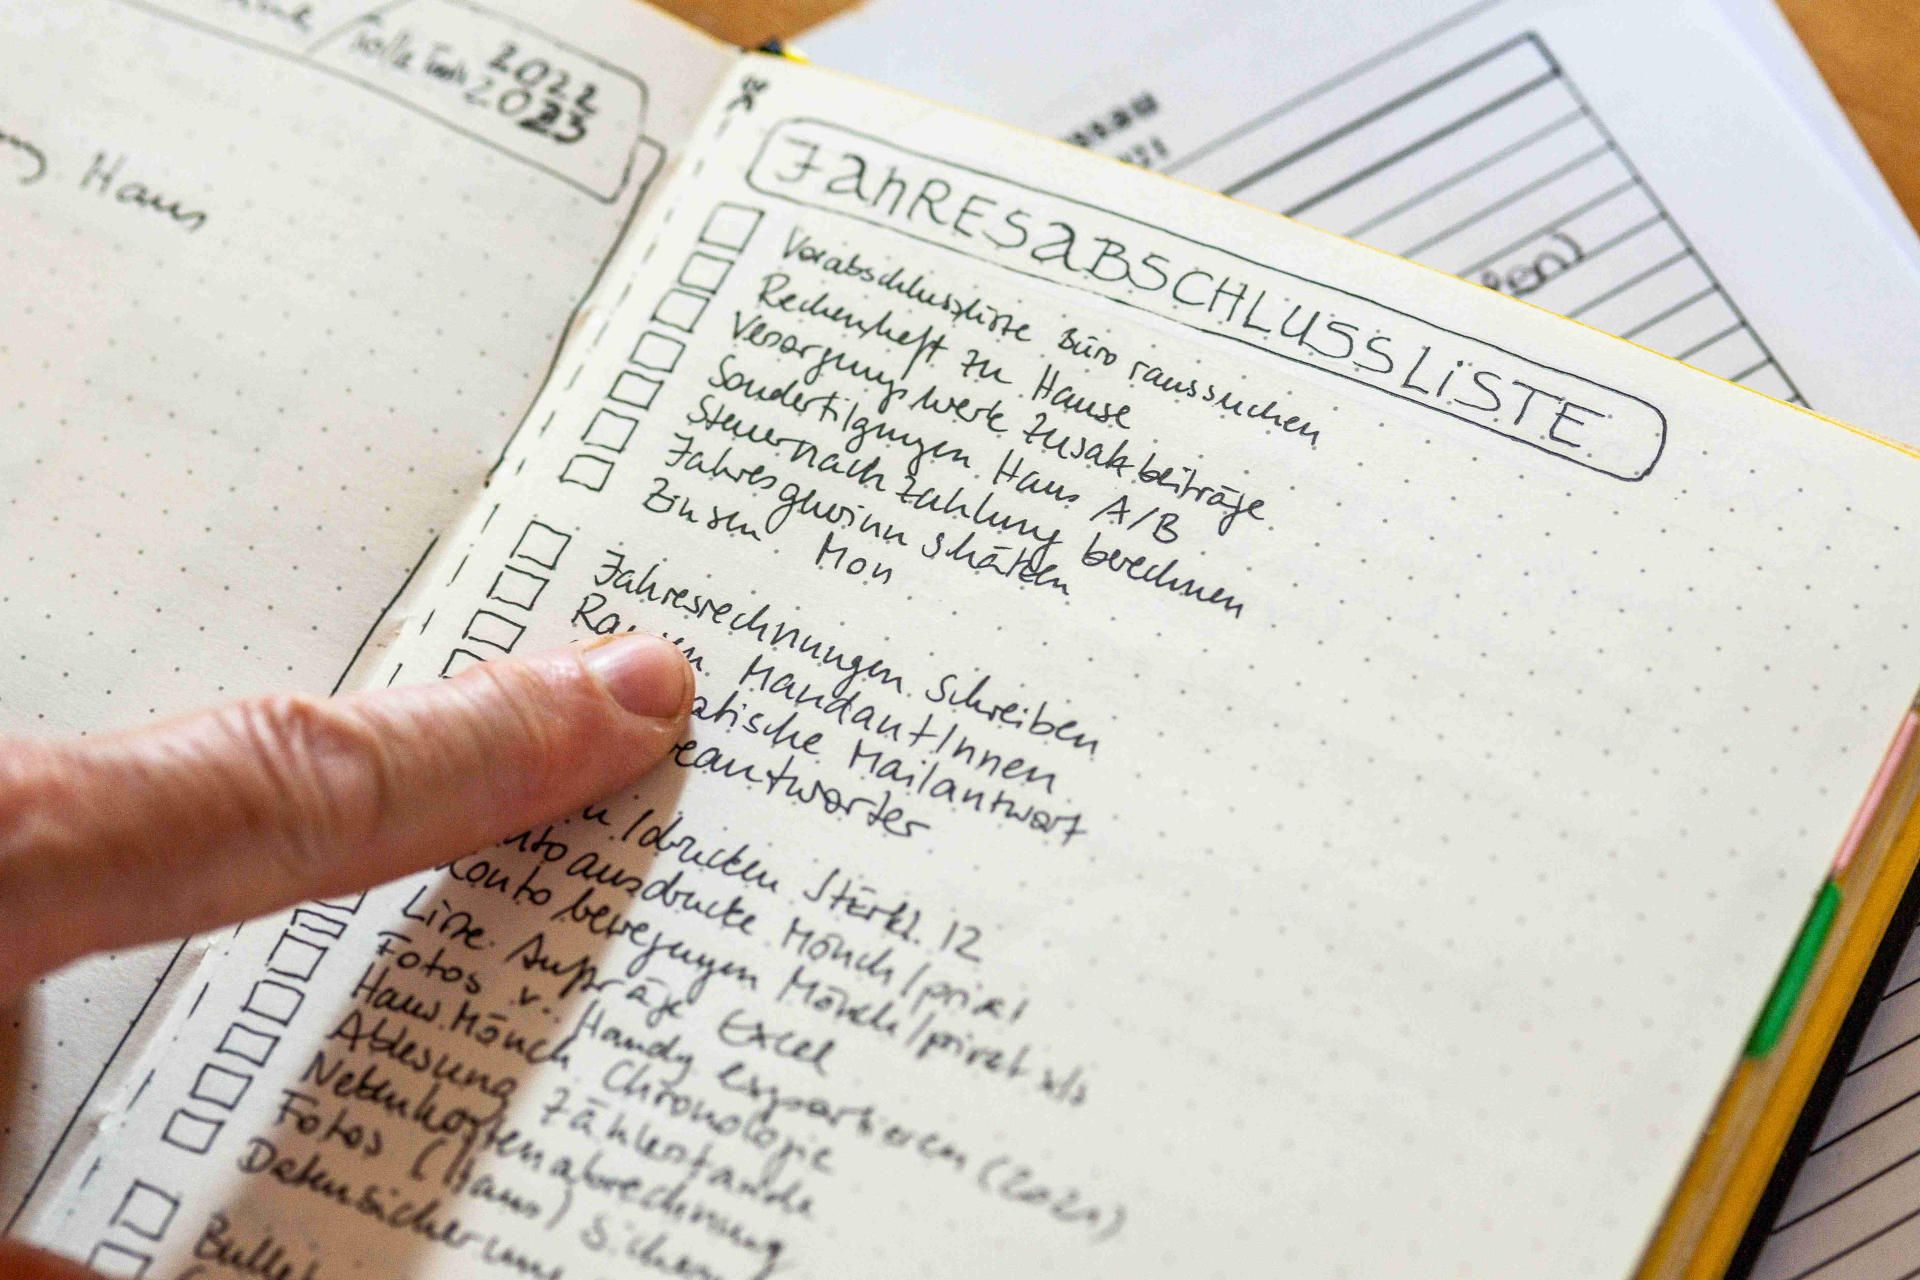 2022
2023
Haus
JAHRESABSCHLUSSLISTE
Vorabschlussliste Büro raussuchen
Rechenheft zu Hause
Versorgungswerk Zusatzbeiträge
Sondertilgungen Haus A/B
Steuernachzahlung berechnen
Jahresgewinn schätzen
Zinsen Mon
Jahresrechnungen schreiben
MandantInnen
atische Mailantwort
eantworter
/drucken Sterkl. 12
ausdrucke Mönch/privat
Kontobewegungen Mönch/privat xls
Liste Aufträge Excel
Fotos v. Handy exportieren (2021)
Haus Mönch Chronologie
Ablesung Zählerstände
Nebenkostenabrechnung
Fotos (Haus) sichern
Datensicherung
Bullet